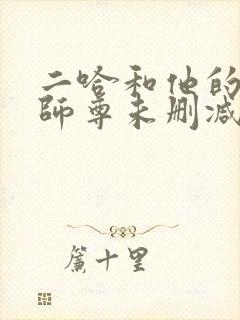 二哈和他的
師尊未删减
簾十里